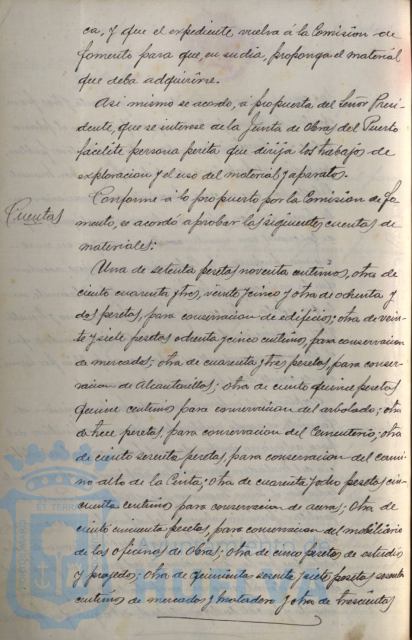 ca, y que el expediente vuelva á la Comisión de
fomento para que, en su dia, proponga el material
que deba adquirirse.
Asi mismo se acordo, á propuesta del Señor Presi-
dente, que se interese de la Junta de Obras del Puerto
facilite persona perita que dirija los trabajos de
exploracion y el uso del material y aparatos.
Cuentas
Conforme á lo propuesto por la Comision de Fo-
mento, se acordó aprobar las siguientes cuentas de
materiales:
Una de setenta pesetas noventa centimos, otra de
ciento cuarenta y tres, veinte y cinco y otra de ochenta y
dos pesetas, para conservacion de edificios; otra de vein-
te y siete pesetas ochenta y cinco centimos, para conservacion
de mercados; otra de cuarenta y tres pesetas, para conser-
vacion de Alcantarillas; otra de ciento quince pesetas
quince centimos para conservacion del arbolado; otra
de trece pesetas, para conservacion del Cementerio; otra
de ciento sesenta pesetas, para conservacion del cami-
no alto de la Cinta; otra de cuarenta y ocho pesetas cin-
cuenta centimos para conservacion de aceras; otra de
ciento cincuenta pesetas, para conservacion del mobiliario
de las oficinas de Obras; otra de cinco pesetas de estudios
y proyectos; otra de quinientas sesenta y siete pesetas sesenta
centimos de mercados y matadero y otra de trescientas